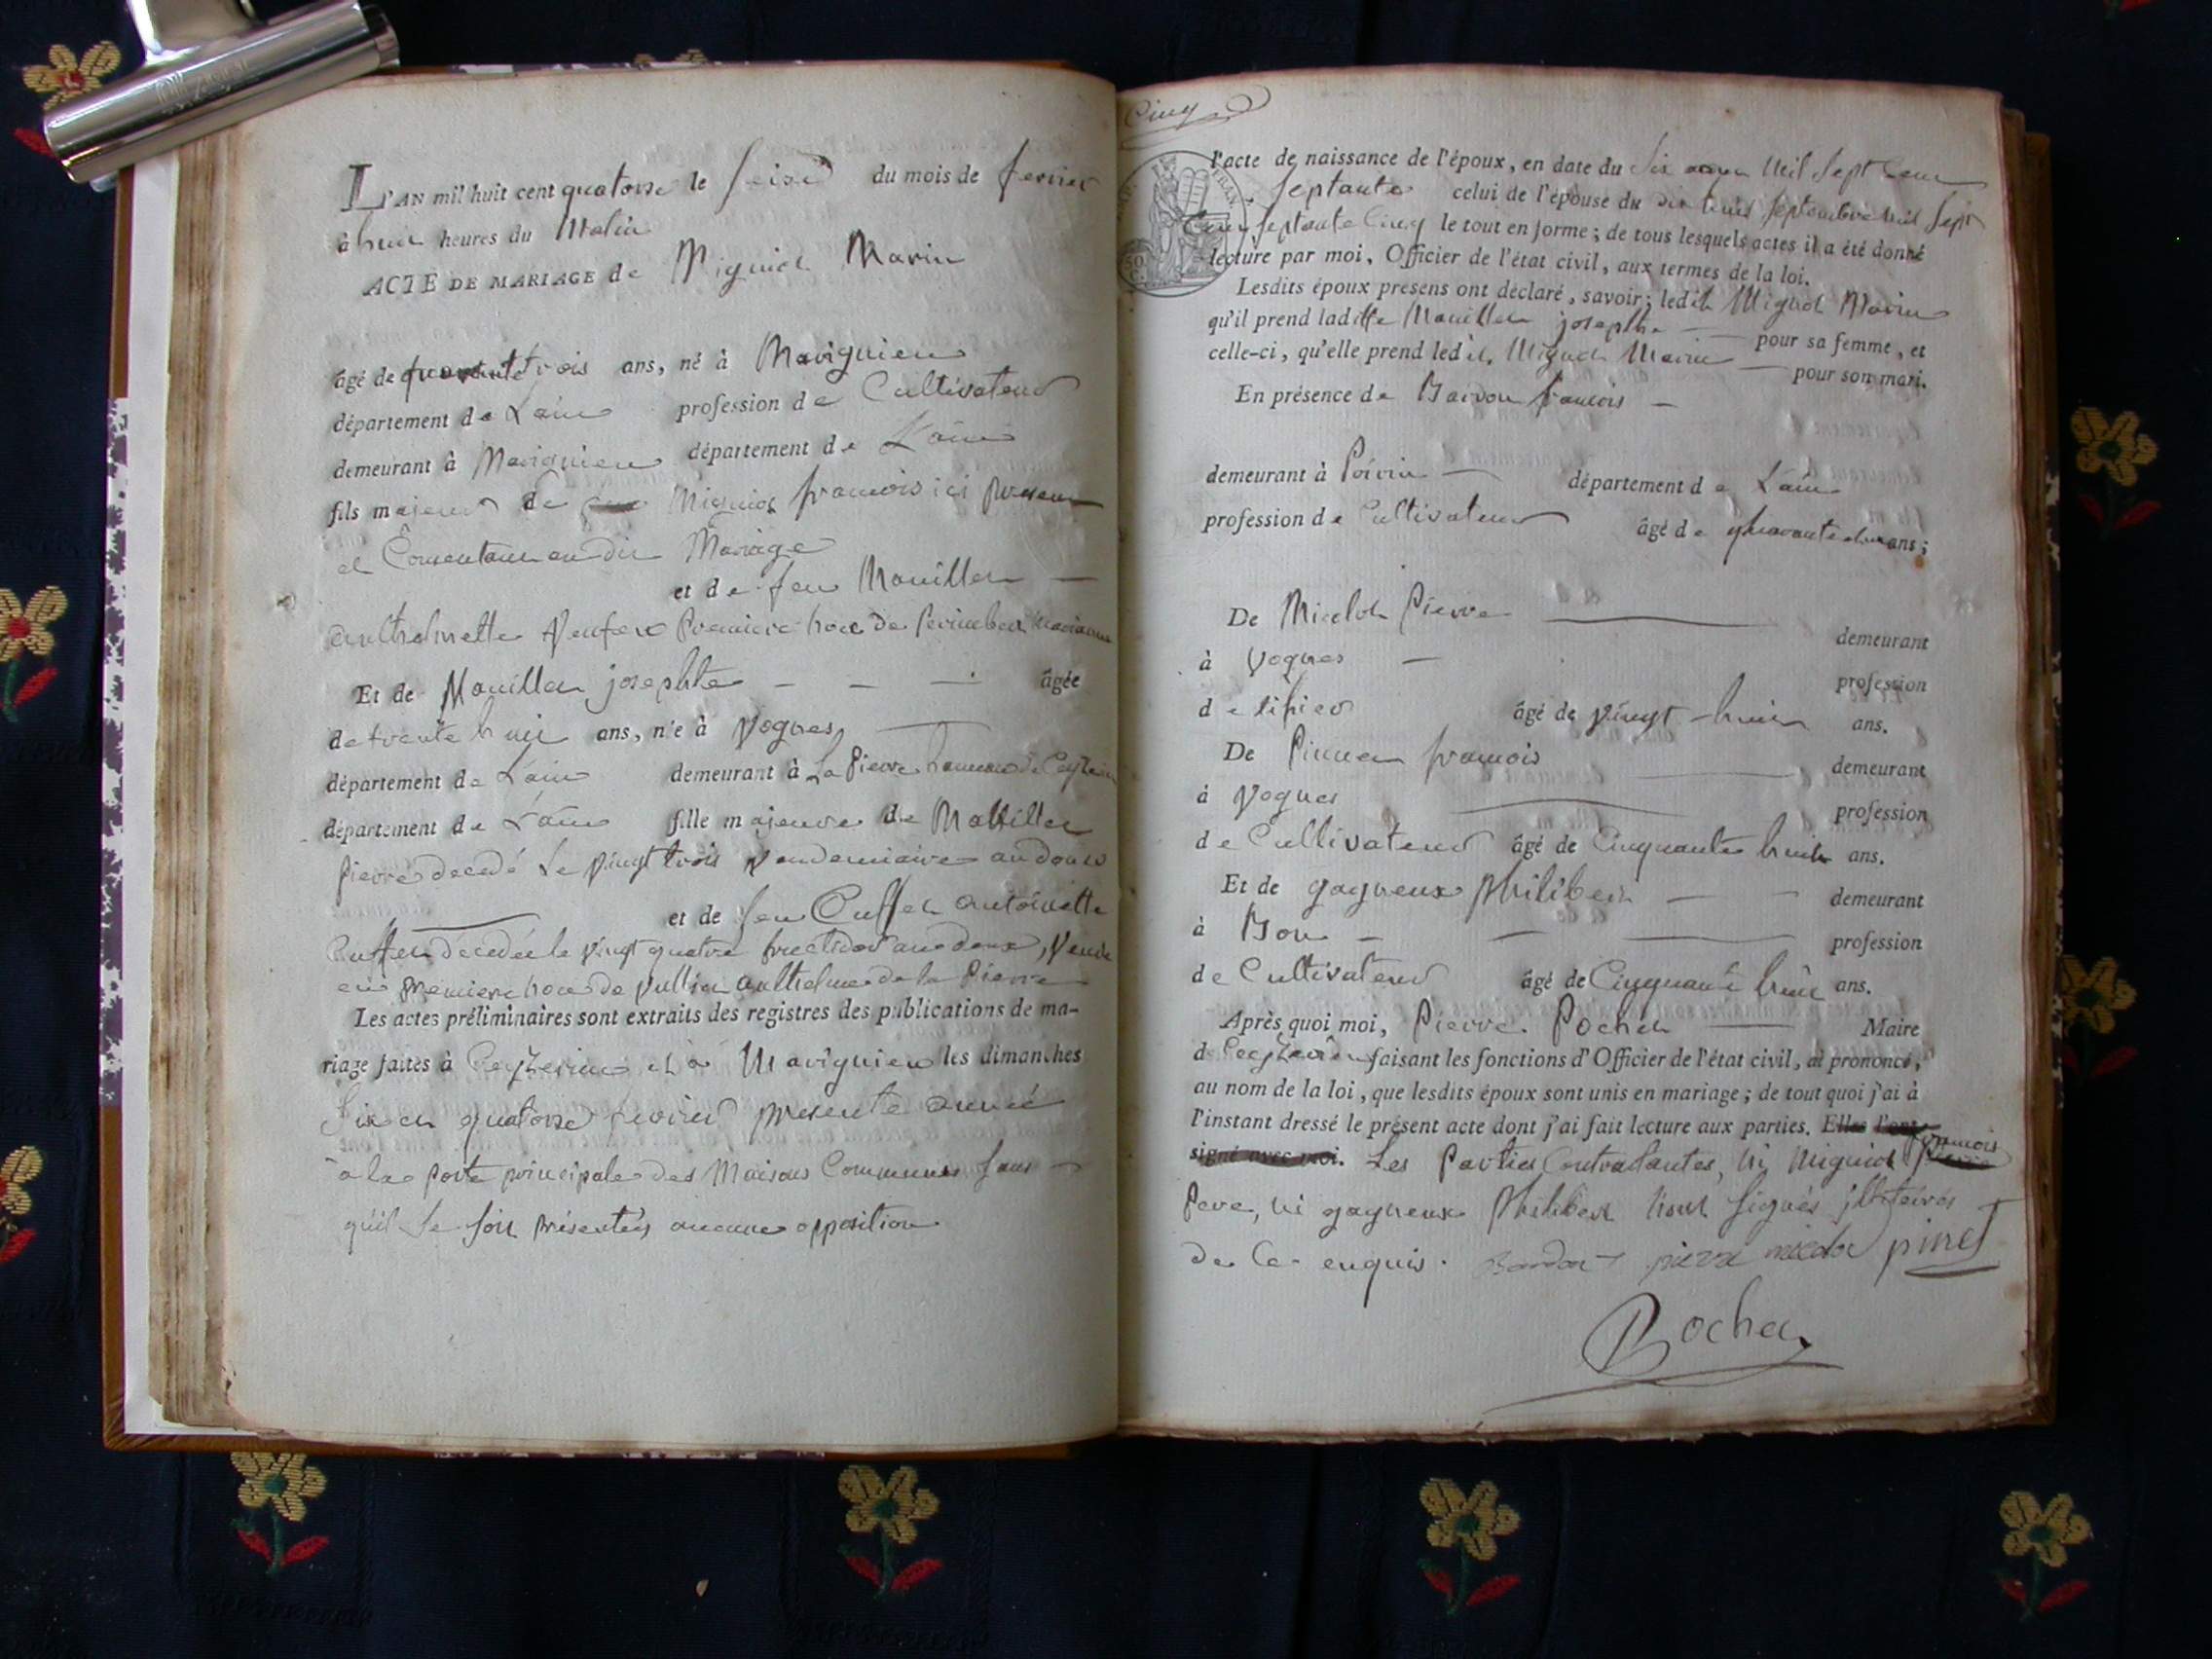 L'AN mil huit cent quatorse le seize du mois de fevrier
à huit heures du Matin
ACTE DE MARIAGE de Miguiet Marin
âgé de quarante trois ans, né à Mavignieu
département de L'ain profession de Cultivateur
demeurant à Mavignieu département de L'ain
fils majeur de Miguiet francois ici present
et Consentant au dit Mariage
et de feu Mouillet
Anthelmette Veuf en Premiere noce de
Et de Mouillet josephte âgée
de trente huit ans, née à Vognes
département de L'ain demeurant à La Pierre hameau de Peyzieu
département de L'ain fille majeure de Mollillet
Pierre decedé Le vingt trois Vendemiaire an douse
et de feu Cuffet antoinette
Cuffet decedée le vingt quatre fructidor an douse, Veuve
en premiere noce de Vulliet Anthelme de la Pierre
Les actes préliminaires sont extraits des registres des publications de ma-
riage faites à et à Mavignieu les dimanches
Six et quatorse fevrier presente année
à la porte principale des Maisons Communes sans
qu'il se soit présentés aucune opposition
Cinq
l'acte de naissance de l'époux, en date du Six Mil Sept Cent
Septante celui de l'épouse du dix huit Septembre Mil Sept
Cent septante Cinq le tout en forme; de tous lesquels actes il a été donné
lecture par moi, Officier de l'état civil, aux termes de la loi.
Lesdits époux presens ont déclaré, savoir; ledit Miguiet Marin
qu'il prend ladite Mouillet josephte pour sa femme, et
celle-ci, qu'elle prend ledit Miguiet Marin pour son mari.
En présence de Bardon francois
demeurant à Poirin département de L'ain
profession de Cultivateur âgé de quarante deux ans;
De Miclot Pierre demeurant
à Vognes profession
de tissier âgé de vingt-huit ans.
De Pinnet francois demeurant
à Vognes profession
de Cultivateur âgé de Cinquante huit ans.
Et de gagneux Philibert demeurant
à Bon profession
de Cultivateur âgé de Cinquante huit ans.
Après quoi moi, Pierre Pochet Maire
de faisant les fonctions d'Officier de l'état civil, ai prononcé,
au nom de la loi, que lesdits époux sont unis en mariage; de tout quoi j'ai à
l'instant dressé le présent acte dont j'ai fait lecture aux parties. Elles l'ont
signé avec moi. Les Parties Contratantes, ni Miguiet francois
Pere, ni gagneux Philibert n'ont signés illiterés
de Ce enquis. pierre miclot pinet
Pochet